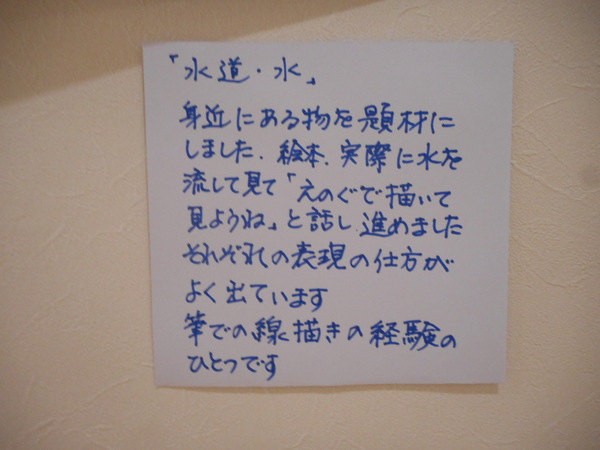 「水道・水」
身近にある物を題材に
しました。絵本、実際に水を
流して見て「えのぐで描いて
見ようね」と話し進めました
それぞれの表現の仕方が
よく出ています
筆での線描きの経験の
ひとつです